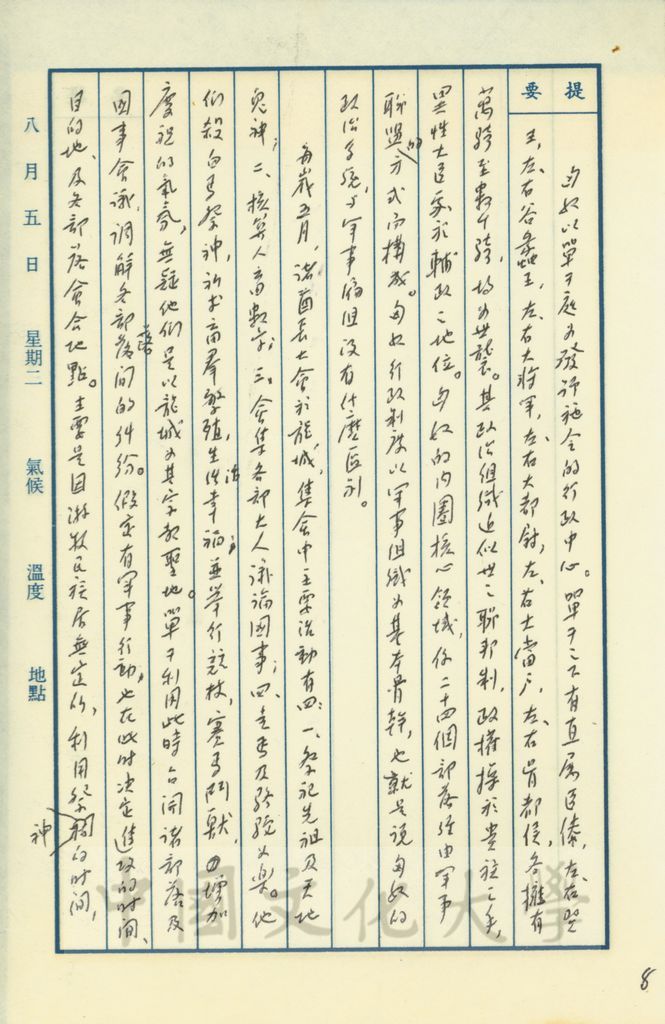 提要
匈奴以單于庭为發号施令的行政中心。單于之下有直屬臣僚,左、右賢
王,左、右谷蠡王,左、右大將軍,左、右大都尉,左、右大當户,左、右骨都侯,各擁有
萬騎至數千騎,均为世襲。其政治組織近似世之聯邦制,政權操於貴族之手,
異性大臣處於輔政之地位。匈奴的内圈核心領域,係二十四個部落經由軍事
聯盟的方式而構成。匈奴行政制度以軍事组織为基本骨幹,也就是说匈奴的
政治系統,与軍事编组没有什麽區別。
每歲五月,諸酋長大會於龍城,集會中主要治動有四:一、祭祀先祖及天地
鬼神;二、核算人畜數字;三、會集各部大人議論國事;四、走馬及駱駝为樂。他
们殺白馬祭神,祈求畜群繁殖,生活幸福,並举行競技,賽馬鬥獸,以增加
慶祝的氣氛,無疑他们是以龍城为其宗教聖地。單于利用此時召開諸部落及
國事會議,调解各部落間的纠纷。假定有軍事行動,也在此时决定進攻的时間、
目的地、及各部落會合地點。主要是因游牧民族居無定所,利用祭神的时間,
八月五日 星期二 氣候 溫度 地點
8
中國文化大學